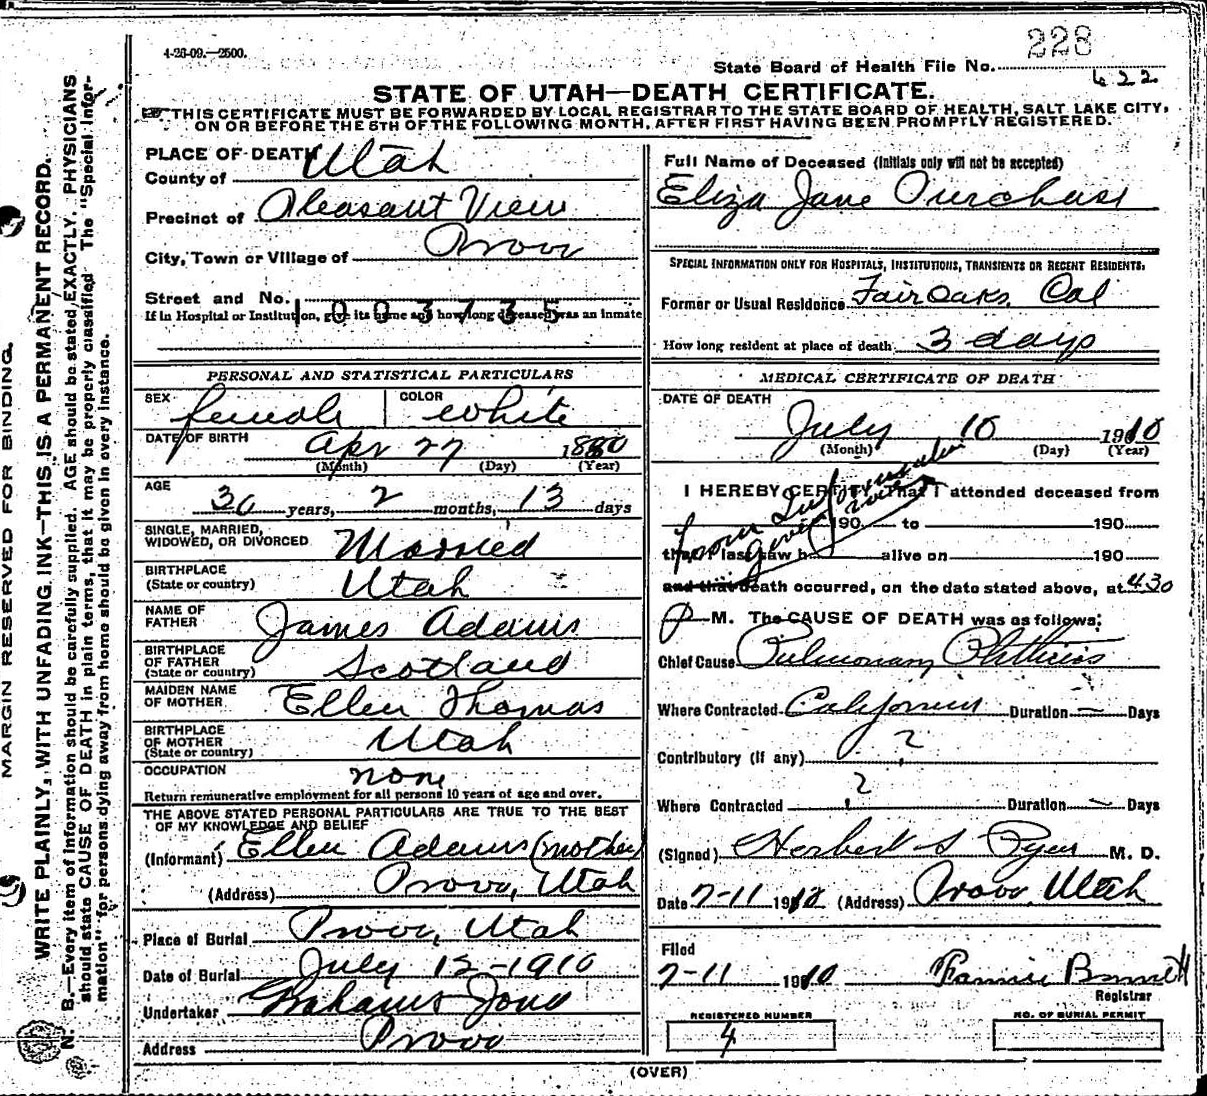 4-26-09.—2500.
228
State Board of Health File No.
422
STATE OF UTAH—DEATH CERTIFICATE.
THIS CERTIFICATE MUST BE FORWARDED BY LOCAL REGISTRAR TO THE STATE BOARD OF HEALTH, SALT LAKE CITY,
ON OR BEFORE THE 5TH OF THE FOLLOWING MONTH, AFTER FIRST HAVING BEEN PROMPTLY REGISTERED.
MARGIN RESERVED FOR BINDING.
WRITE PLAINLY, WITH UNFADING INK—THIS IS A PERMANENT RECORD.
N. B.—Every item of information should be carefully supplied. AGE should be stated EXACTLY. PHYSICIANS
should state CAUSE OF DEATH in plain terms, that it may be properly classified. The "Special Infor-
mation" for persons dying away from home should be given in every instance.
PLACE OF DEATH
County of Utah
Precinct of Pleasant View
City, Town or Village of Provo
Street and No.
1003735
If in Hospital or Institution, give its name and how long deceased was an inmate
PERSONAL AND STATISTICAL PARTICULARS
SEX female COLOR white
DATE OF BIRTH Apr 27 1880
(Month) (Day) (Year)
AGE
30 years, 2 months, 13 days
SINGLE, MARRIED,
WIDOWED, OR DIVORCED Married
BIRTHPLACE
(State or country) Utah
NAME OF
FATHER James Adams
BIRTHPLACE
OF FATHER
(State or country) Scotland
MAIDEN NAME
OF MOTHER Ellen Thomas
BIRTHPLACE
OF MOTHER
(State or country) Utah
OCCUPATION none
Return remunerative employment for all persons 10 years of age and over.
THE ABOVE STATED PERSONAL PARTICULARS ARE TRUE TO THE BEST
OF MY KNOWLEDGE AND BELIEF
(Informant) Ellen Adams (mother)
(Address) Provo, Utah
Place of Burial Provo, Utah
Date of Burial July 12-1910
Undertaker
Address Provo
Full Name of Deceased (Initials only will not be accepted)
Eliza Jane Purchase
SPECIAL INFORMATION ONLY FOR HOSPITALS, INSTITUTIONS, TRANSIENTS OR RECENT RESIDENTS:
Former or Usual Residence Fair Oaks, Cal
How long resident at place of death 3 days
MEDICAL CERTIFICATE OF DEATH
DATE OF DEATH
July 10 1910
(Month) (Day) (Year)
I HEREBY CERTIFY, That I attended deceased from
190 to 190
that I last saw h alive on 190
From Information
given
and that death occurred, on the date stated above, at 4 30
P M. The CAUSE OF DEATH was as follows:
Chief Cause Pulmonary Phthisis
Where Contracted California Duration — Days
Contributory (if any) ?
Where Contracted ? Duration — Days
(Signed) Herbert S Pyne M. D.
Date 7-11 1910 (Address) Provo, Utah
Filed
7-11 1910 Bennett
Registrar
REGISTERED NUMBER
4
NO. OF BURIAL PERMIT
(OVER)